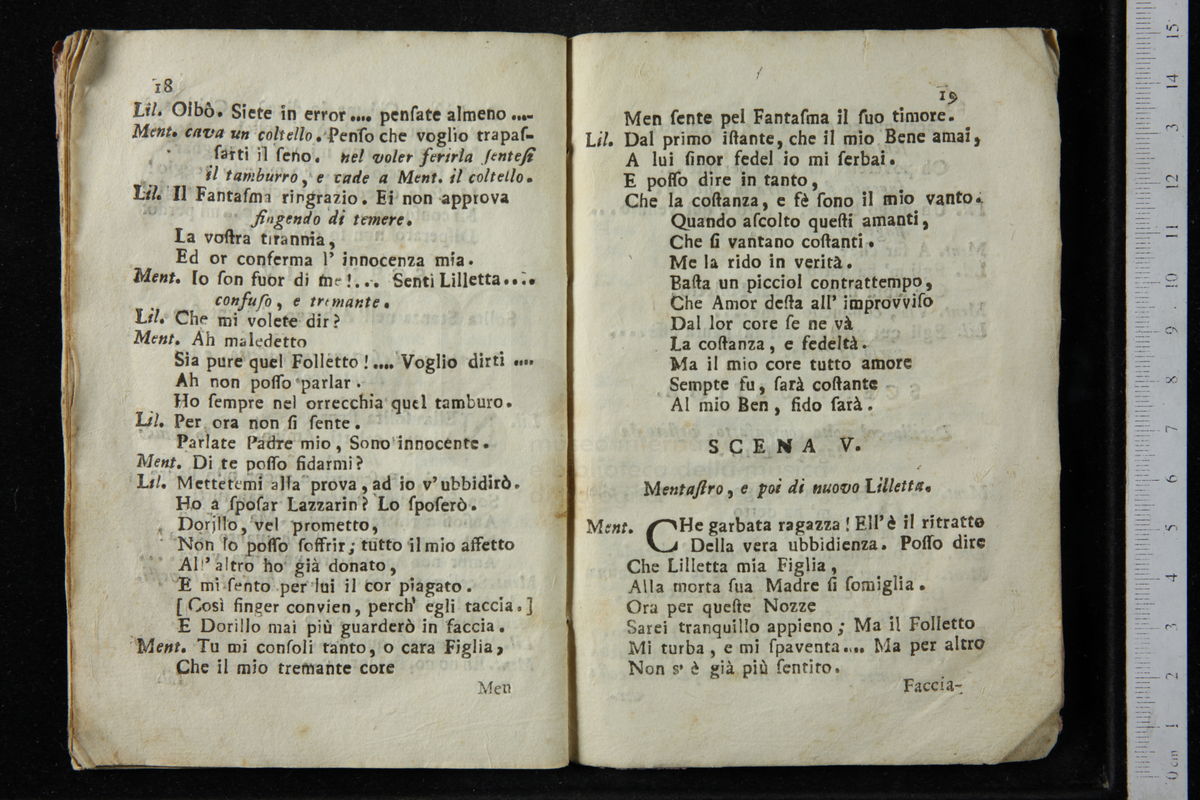 18
Lil. Oibò. Siete in error.... penſate almeno ....
Ment. cava un coltello. Penſo che voglio trapaſ-
ſarti il ſeno. nel voler ferirla ſenteſi
il tamburro, e cade a Ment. il coltello.
Lil. Il Fantaſma ringrazio. Ei non approva
fingendo di temere.
La voſtra tirannia,
Ed or conferma l' innocenza mia.
Ment. Io ſon fuor di me!... Senti Lilletta....
confuſo, e tremante.
Lil. Che mi volete dir?
Ment. Ah maledetto
Sia pure quel Folletto!.... Voglio dirti ....
Ah non poſſo parlar.
Ho ſempre nel orrecchia quel tamburo.
Lil. Per ora non ſi ſente.
Parlate Padre mio, Sono innocente.
Ment. Di te poſſo fidarmi?
Lil. Mettetemi alla prova, ad io v' ubbidirò.
Ho a ſpoſar Lazzarin? Lo ſpoſerò.
Dorillo, vel prometto,
Non lo poſſo ſoffrir; tutto il mio affetto
All' altro ho già donato,
E mi ſento per lui il cor piagato.
[Così finger convien, perch' egli taccia.]
E Dorillo mai più guarderò in faccia.
Ment. Tu mi conſoli tanto, o cara Figlia,
Che il mio tremante core
Men
19
Men ſente pel Fantaſma il ſuo timore.
Lil. Dal primo iſtante, che il mio Bene amai,
A lui ſinor fedel io mi ſerbai.
E poſſo dire in tanto,
Che la coſtanza, e fè ſono il mio vanto.
Quando aſcolto queſti amanti,
Che ſi vantano coſtanti.
Me la rido in verità.
Baſta un picciol contrattempo,
Che Amor deſta all' improvviſo
Dal lor core ſe ne và
La coſtanza, e fedeltà.
Ma il mio core tutto amore
Sempte fu, ſarà coſtante
Al mio Ben, fido ſarà.
SCENA V.
Mentaſtro, e poi di nuovo Lilletta.
Ment. CHe garbata ragazza! Ell' è il ritratto
Della vera ubbidienza. Poſſo dire
Che Lilletta mia Figlia,
Alla morta ſua Madre ſi ſomiglia.
Ora per queſte Nozze
Sarei tranquillo appieno; Ma il Folletto
Mi turba, e mi ſpaventa.... Ma per altro
Non s' è già più ſentito.
Faccia-
0 cm 1 2 3 4 5 6 7 8 9 10 11 12 13 14 15